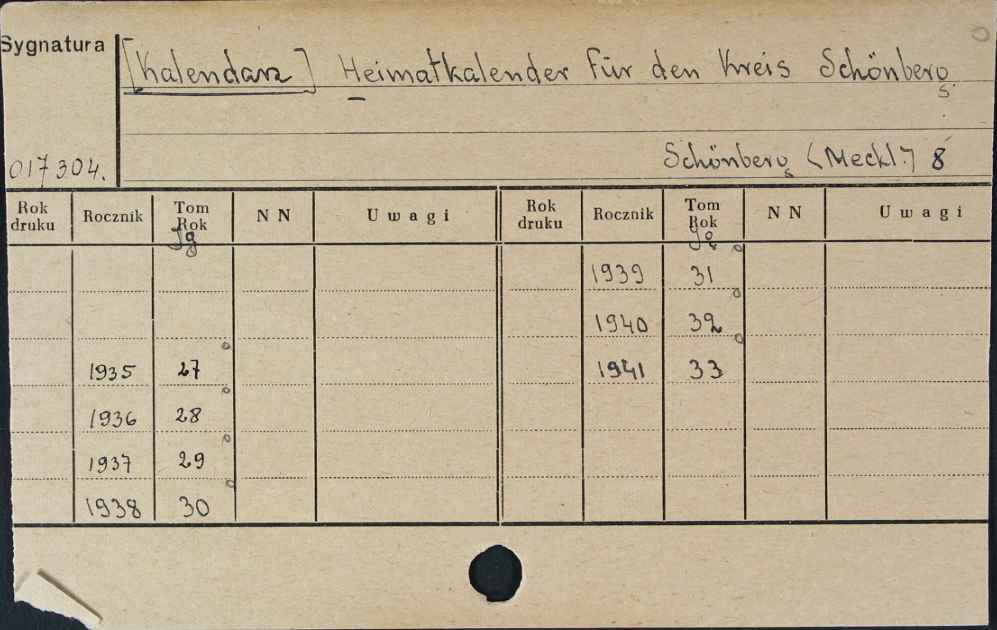 Sygnatura
[Kalendarz] Heimatkalender für den Kreis Schönberg
s.
Schönberg (Meckl.) 8
017304.
Rok druku Rocznik Tom Rok NN Uwagi Rok druku Rocznik Tom Rok NN Uwagi
Jg Jg
1939 31
1940 32
1935 27 1941 33
1936 28
1937 29
1938 30